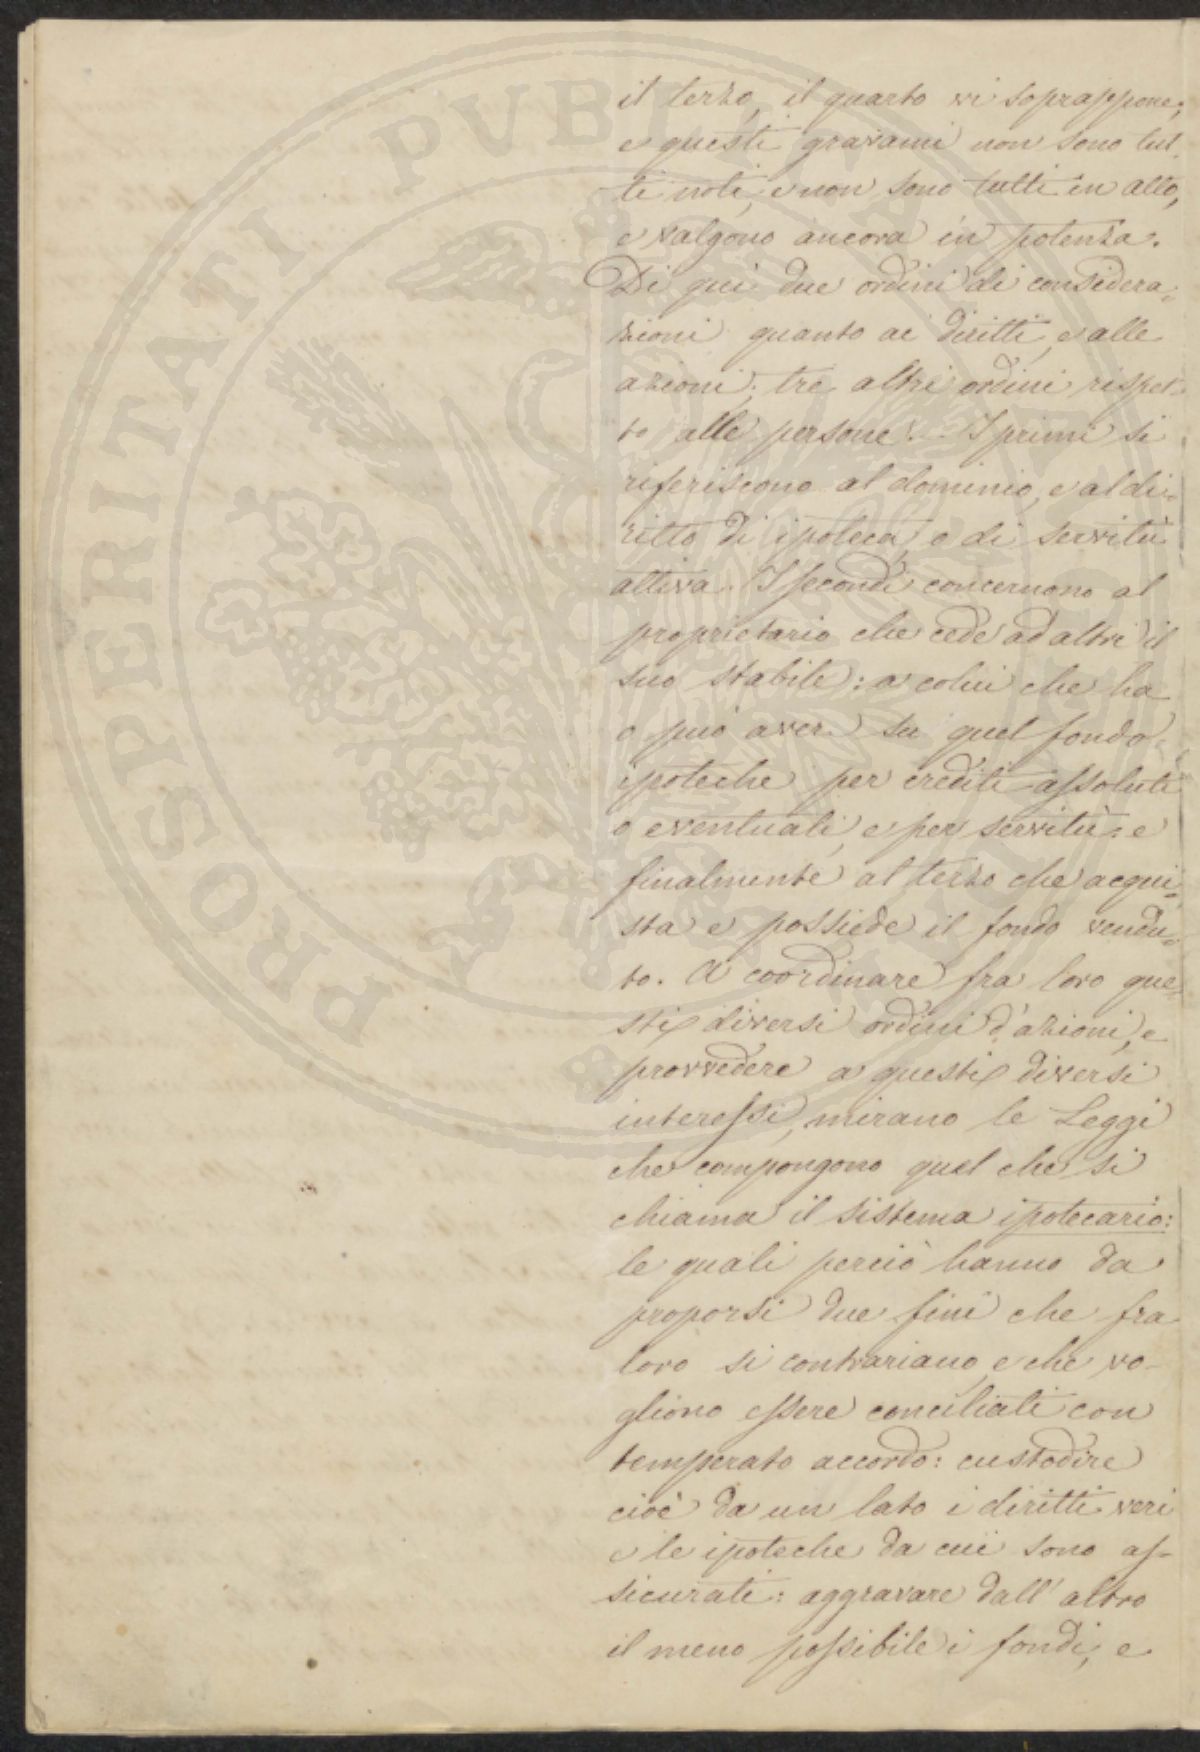 il terzo, il quarto vi soprappone;
e questi gravami non sono tut=
ti noti, e non sono tutti in atto,
e valgono ancora in potenza.
Di quì due ordini di considera=
zioni quanto ai diritti, e alle
azioni; tre altri ordini rispet=
to alle persone. I primi si
riferiscono al dominio, e al di=
ritto di ipoteca, o di servitù
attiva. I secondi concernono al
proprietario che cede ad altri il
suo stabile: a colui che ha
o può aver su quel fondo
ipoteche per crediti assoluti
o eventuali, e per servitù: e
finalmente al terzo che acqui=
sta e possiede il fondo vendu=
to. A coordinare fra loro que=
sti diversi ordini d'azioni, e
provvedere a questi diversi
interessi, mirano le Leggi
che compongono quel che si
chiama il sistema ipotecario:
le quali perciò hanno da
proporsi due fini che fra
loro si contrariano, e che vo=
gliono essere conciliati con
temperato accordo: custodire
cioè da un lato i diritti veri
e le ipoteche da cui sono as=
sicurati: aggravare dall'altro
il meno possibile i fondi, e
PROSPERITATI PUBLICAE